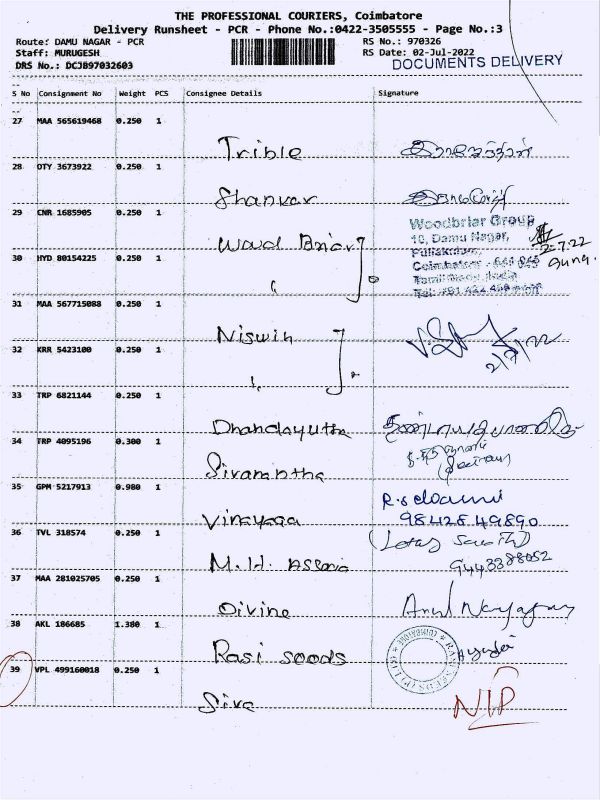 THE PROFESSIONAL COURIERS, Coimbatore
Delivery Runsheet - PCR - Phone No.:0422-3505555 - Page No.:3
Route: DAMU NAGAR - PCR RS No.: 970326
Staff: MURUGESH RS Date: 02-Jul-2022
DRS No.: DCJB97032603 DOCUMENTS DELIVERY
S No Consignment No Weight PCS Consignee Details Signature
27 MAA 565619468 0.250 1
Trible
28 OTY 3673922 0.250 1
Shankar
29 CNR 1685905 0.250 1
Woodbriar Group
18, Damu Nagar,
Wood Briar
Puliakulam,
30 HYD 80154225 0.250 1
Coimbatore - 641 045
Tamil Nadu, India
31 MAA 567715088 0.250 1
Niswin
32 KRR 5423100 0.250 1
2/7/22
33 TRP 6821144 0.250 1
Dhandayutha
34 TRP 4095196 0.300 1
35 GPM 5217913 0.980 1
98428 49890
Vinayaga
36 TVL 318574 0.250 1
M.H.
37 MAA 281025705 0.250 1
Divine
38 AKL 186685 1.380 1
Rasi seeds
39 VPL 499160018 0.250 1
Siva NIP